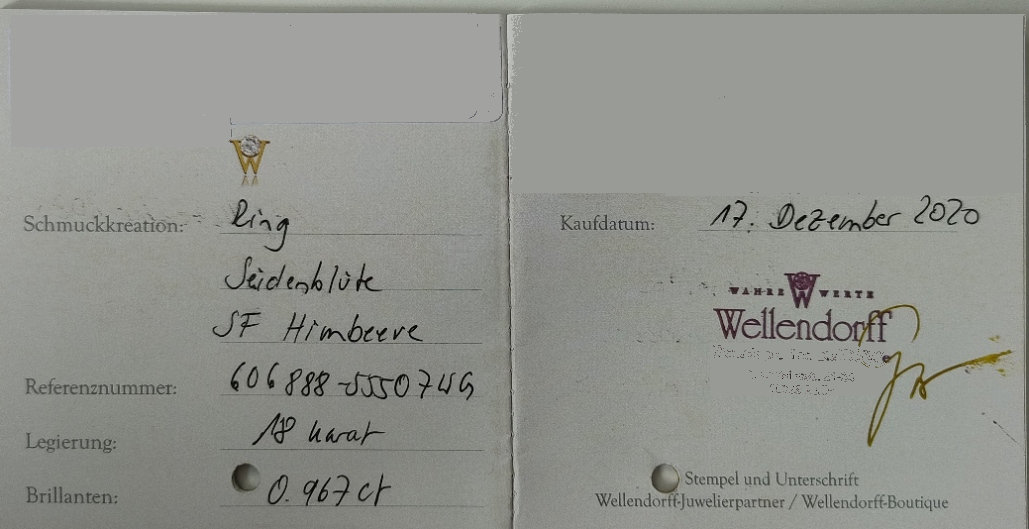 W
Schmuckkreation: Ring
Seidenblüte
SF Himbeere
Referenznummer: 606888-555074SG
Legierung: 18 karat
Brillanten: 0.967 ct
Kaufdatum: 17. Dezember 2020
WAHRE W WERTE
Wellendorff
Stempel und Unterschrift
Wellendorff-Juwelierpartner / Wellendorff-Boutique